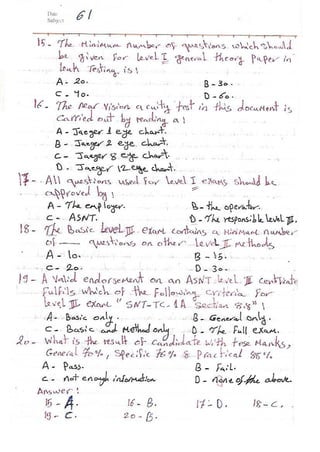 Date
Subject
61
15- The Minimum number of questions which should
be given for level I general theory paper in
leak Testing is!
A- 20. B- 30.
C- 40. D- 60.
16- The near vision acuity test in this document is
Carried out by reading a!
A- Jaeger 1 eye chart.
B- Jaeger 2 eye chart.
C- Jaeger 8 eye chart.
D. Jaeger 12 eye chart.
17- All questions used for level I exams should be
approved by!
A- The employer. B- the operator.
C- ASNT. D- The responsible level III.
18- The Basic level III exam contains a Minimum number
of — questions on other level II methods
A- 10. B- 15.
C- 20. D- 30.
19- A Valid endorsement on an ASNT level III centificate
fulfils which of the following criteria for
level III exam "SNT-TC-1A Section 8.8"!
A- Basic only. B- General only.
C- Basic and Method only D- The full exam.
20- What is the result of candidate with these Marks,
General 70%, Specific 76% & Practical 85%
A- Pass. B- Fail.
C- not enough information D- none of the above.
Answer:
15- A. 16- B. 17- D. 18- C.
19- C. 20- B.